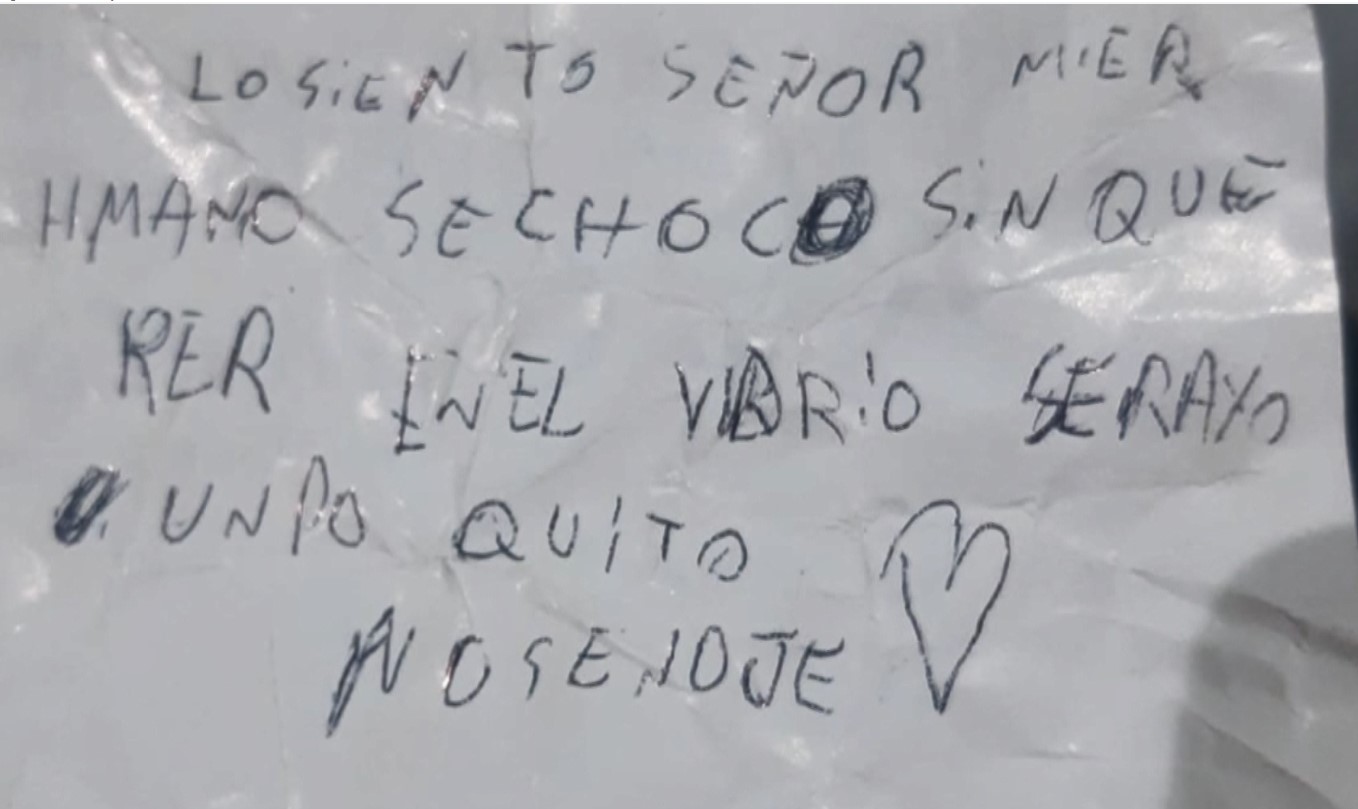 LO SiENTO SEÑOR MiER
HMANO SE CHOCO SiN QUE
RER ENEL ViBRiO SE RAYO
UN PO QUiTO
NO SE NOJE